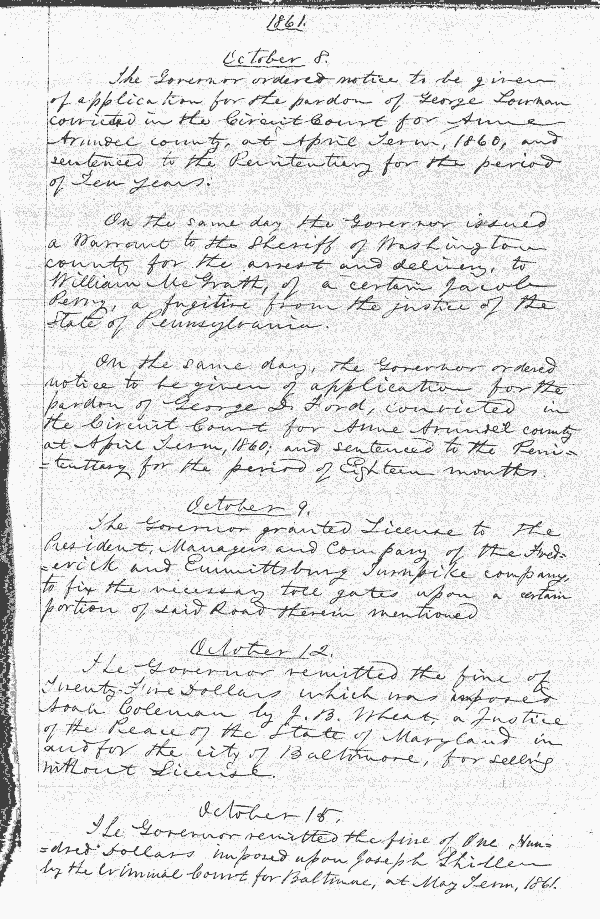 1861.
October 8.
The Governor ordered notice to be given
of application for the pardon of George Lowman
convicted in the Circuit Court for Anne
Arundel county, at April Term, 1860, and
sentenced to the Penitentiary for the period
of Ten years.
On the same day the Governor issued
a Warrant to the Sheriff of Washington
county for the arrest and delivery, to
William McGrath, of a certain Jacob
Perry, a fugitive from the justice of the
State of Pennsylvania.
On the same day, the Governor ordered
notice to be given of application for the
pardon of George D. Ford, convicted in
the Circuit Court for Anne Arundel county
at April Term, 1860; and sentenced to the Peni-
-tentiary for the period of Eighteen months.
October 9.
The Governor granted License to the
President, Managers and Company of the Fred-
-erick and Emmittsburg Turnpike company,
to fix the necessary toll gates upon a certain
portion of said Road therein mentioned
October 12.
The Governor remitted the fine of
Twenty-Five Dollars which was imposed
Noah Coleman by J. B. Wheat, a Justice
of the Peace of the State of Maryland in
and for the city of Baltimore, for selling
without License.
October 15.
The Governor remitted the fine of One Hun-
-dred Dollars imposed upon Joseph
by the Criminal Court for Baltimore, at May Term, 1861.